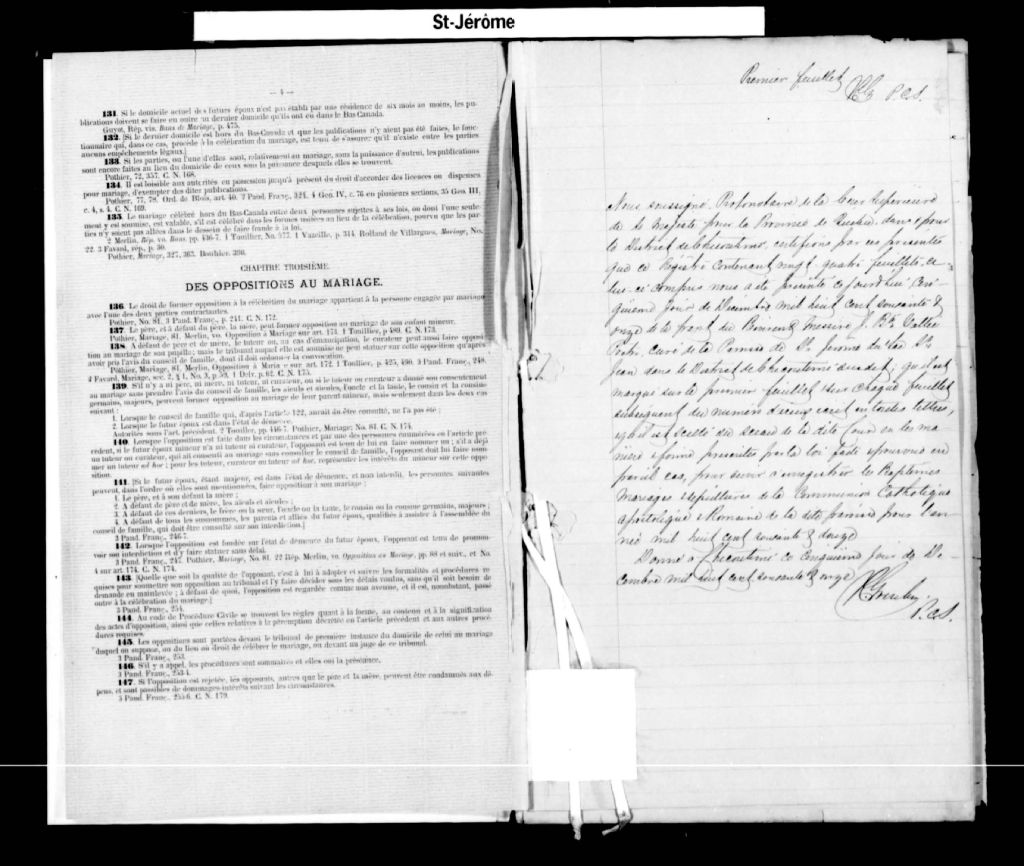 St-Jérôme
— 4 —
131. Si le domicile actuel des futurs époux n'est pas établi par une résidence de six mois au moins, les pu-
blications doivent se faire en outre au dernier domicile qu'ils ont eu dans le Bas Canada.
Guyot, Rép. vis. Bans de Mariage, p. 475.
132. [Si le dernier domicile est hors du Bas-Canada et que les publications n'y aient pas été faites, le fonc-
tionnaire qui, dans ce cas, procède à la célébration du mariage, est tenu de s'assurer qu'il n'existe entre les parties
aucuns empêchements légaux.]
133. Si les parties, ou l'une d'elles sont, relativement au mariage, sous la puissance d'autrui, les publications
sont encore faites au lieu du domicile de ceux sous la puissance desquels elles se trouvent.
Pothier, 72, 357. C. N. 168.
134. Il est loisible aux autorités en possession jusqu'à présent du droit d'accorder des licences ou dispenses
pour mariage, d'exempter des dites publications.
Pothier, 77, 78. Ord. de Blois, art. 40. 2 Pand. Franç. 321. 4 Geo. IV, c. 76 en plusieurs sections, 35 Geo. III,
c. 4, s. 4. C. N. 169.
135. Le mariage célébré hors du Bas-Canada entre deux personnes sujettes à ses lois, ou dont l'une seule-
ment y est soumise, est valable, s'il est célébré dans les formes usitées au lieu de la célébration, pourvu que les par-
ties n'y soient pas allées dans le dessein de faire fraude à la loi.
2 Merlin, Rép. vo. Bans, pp. 446-7. 1 Toullier, No. 577. 1 Vazeille, p. 314. Rolland de Villargues, Mariage, No.
22. 3 Favard, rép., p. 50.
Pothier, Mariage, 327, 363. Bouhier. 390.
CHAPITRE TROISIÈME.
DES OPPOSITIONS AU MARIAGE.
136. Le droit de former opposition à la célébration du mariage appartient à la personne engagée par mariage
avec l'une des deux parties contractantes.
Pothier, No. 81. 3 Pand. Franç., p. 241. C. N. 172.
137. Le père, et à défaut du père, la mère, peut former opposition au mariage de son enfant mineur.
Pothier, Mariage, 81. Merlin, vo. Opposition à Mariage sur art. 173. 1 Toullier, p 489. C. N. 173.
138. A défaut de père et de mère, le tuteur ou, au cas d'émancipation, le curateur peut aussi faire opposi-
tion au mariage de son pupille; mais le tribunal auquel elle est soumise ne peut statuer sur cette opposition qu'après
avoir pris l'avis du conseil de famille, dont il doit ordonner la convocation.
Pothier, Mariage, 81. Merlin, Opposition à Mariage sur art. 172. 1 Toullier, p. 425, 490. 3 Pand. Franç., 248.
4 Favard, Mariage, sec. 2, § 1, No. 3, p 59. 1 Delv. p. 62. C. N. 175.
139. S'il n'y a ni père, ni mère, ni tuteur, ni curateur, ou si le tuteur ou curateur a donné son consentement
au mariage sans prendre l'avis du conseil de famille, les aïeuls et aïeules, l'oncle et la tante, le cousin et la cousine
germains, majeurs, peuvent former opposition au mariage de leur parent mineur, mais seulement dans les deux cas
suivant :
1. Lorsque le conseil de famille qui, d'après l'article 122, aurait du être consulté, ne l'a pas été ;
2. Lorsque le futur époux est dans l'état de démence.
Autorités sous l'art. précédent. 2 Toullier, pp. 446-7. Pothier, Mariage; No. 81. C. N. 174.
140. Lorsque l'opposition est faite dans les circonstances et par une des personnes énumérées en l'article pré-
cédent, si le futur époux mineur n'a ni tuteur ni curateur, l'opposant est tenu de lui en faire nommer un ; s'il a déjà
un tuteur ou curateur, qui ait consenti au mariage sans consulter le conseil de famille, l'opposant doit lui faire nom-
mer un tuteur ad hoc ; pour les tuteur, curateur ou tuteur ad hoc, représenter les intérêts du mineur sur cette oppo-
sition.
141. [Si le futur époux, étant majeur, est dans l'état de démence, et non interdit, les personnes suivantes
peuvent, dans l'ordre où elles sont mentionnées, faire opposition à son mariage ;
1. Le père, et à son défaut la mère ;
2. A défaut de père et de mère, les aïeuls et aïeules ;
3. A défaut de ces derniers, le frère ou la sœur, l'oncle ou la tante, le cousin ou la cousine germains, majeurs ;
4. A défaut de tous les susnommés, les parents et alliés du futur époux, qualifiés à assister à l'assemblée du
conseil de famille, qui doit être consulté sur son interdiction.]
3 Pand. Franç., 246-7.
142. Lorsque l'opposition est fondée sur l'état de démence du futur époux, l'opposant est tenu de promou-
voir son interdiction et d'y faire statuer sans délai.
3 Pand. Franç., 247. Pothier, Mariage, No. 81. 22 Rép. Merlin, vo. Opposition au Mariage, pp. 88 et suiv., et No.
4 sur art. 174. C. N. 174.
143. [Quelle que soit la qualité de l'opposant, c'est à lui à adopter et suivre les formalités et procédures re-
quises pour soumettre son opposition au tribunal et l'y faire décider sous les délais voulus, sans qu'il soit besoin de
demande en mainlevée ; à défaut de quoi, l'opposition est regardée comme non avenue, et il est, nonobstant, passé
outre à la célébration du mariage.]
3 Pand. Franç., 254.
144. Au code de Procédure Civile se trouvent les règles quant à la forme, au contenu et à la signification
des actes d'opposition, ainsi que celles relatives à la péremption décrétée en l'article précédent et aux autres procé-
dures requises.
145. Les oppositions sont portées devant le tribunal de première instance du domicile de celui au mariage
duquel on suppose, ou du lieu où droit de célébrer le mariage, ou devant un juge de ce tribunal.
3 Pand. Franç., 253.
146. S'il y a appel, les procédures sont sommaires et elles ont la préséance.
3 Pand. Franç., 253-4.
147. Si l'opposition est rejetée, les opposants, autres que le père et la mère, peuvent être condamnés aux dé-
pens, et sont passibles de dommages-intérêts suivant les circonstances.
3 Pand. Franç., 255-6. C. N. 179.
Premier feuillet
P. C. S.
Nous soussigné, Protonotaire de la Cour Supérieure
de Sa Majesté pour la Province de Québec, dans & pour
le District de Chicoutimi, certifions par ces présentes
que ce Régistre contenant vingt quatre feuillets, ce-
lui-ci compris nous a été présenté ce jourd'hui Cin-
quième jour de Décembre mil huit cent soixante &
onze de la part du Révérend Messire J. Bte Vallée
Ptre, curé de la Paroisse de St Jérôme du Lac St
Jean dans le District de Chicoutimi susdit; qu'il est
marqué sur le premier feuillet & sur chaque feuillet
subséquent du numéro d'iceux écrit en toutes lettres,
& qu'il est scellé du sceau de la dite Cour en la ma-
nière & forme prescrites par la loi faite & pourvue en
pareil cas, pour servir à enregistrer les Baptêmes
Mariages & sépultures de la Communion Catholique
apostolique & Romaine de la dite paroisse pour l'an-
née mil huit cent soixante & douze
Donné à Chicoutimi ce cinquième jour de Dé-
cembre mil huit cent soixante & onze
P. C. S.